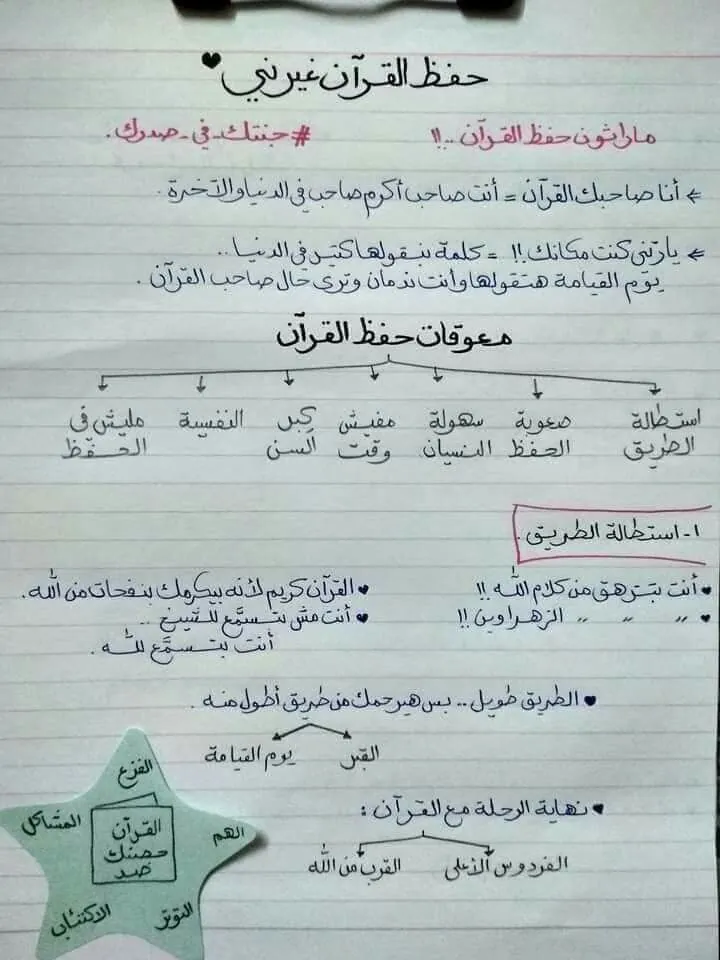 حفظ القرآن غيرني ♥
ماراثون حفظ القرآن ..!! #جنتك_في_صدرك.
⇐ أنا صاحبك القرآن = أنت صاحب أكرم صاحب في الدنيا والآخرة .
⇐ يارتني كنت مكانك !! = كلمة بنقولها كتير في الدنيا ..
يوم القيامة هتقولها وأنت ندمان وترى حال صاحب القرآن .
معوقات حفظ القرآن
استطالة الطريق
صعوبة الحفظ
سهولة النسيان
مفيش وقت
كبر السن
النفسية
مليش في الحفظ
١- استطالة الطريق .
♥ أنت بتزهق من كلام الله !!
♥ 〃 〃 〃 الزهراوين !!
♥ القرآن كريم لأنه بيكرمك بنفحات من الله.
♥ أنت مش بتسمَّع للشيخ ..
أنت بتسمَّع لله .
♥ الطريق طويل .. بس هيرحمك من طريق أطول منه .
القبر
يوم القيامة
♥ نهاية الرحلة مع القرآن :
الفردوس الأعلى
القرب من الله
الفزع
المشاكل
الهم
القرآن
حصنك
ضد
الاكتئاب
التوتر